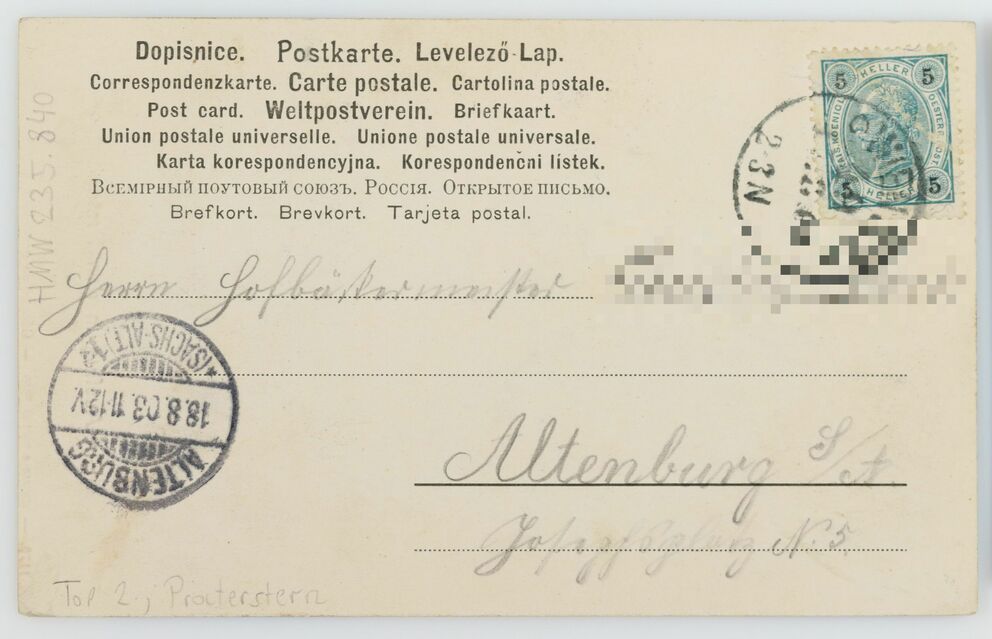 Dopisnice. Postkarte. Levelező-Lap.
Correspondenzkarte. Carte postale. Cartolina postale.
Post card. Weltpostverein. Briefkaart.
Union postale universelle. Unione postale universale.
Karta korespondencyjna. Korespondenčni lístek.
Всемірный поутовый союзъ. Россія. Открытое письмо.
Brefkort. Brevkort. Tarjeta postal.
5 HELLER 5
5 HELLER 5
23N
HMW 235.840
Herrn Hofbäckermeister
(SACHS-ALT) 1
18.8.03.11-12V.
ALTENBURG
Altenburg S/A.
Josephsplatz N. 5.
Top 2., Praterstern